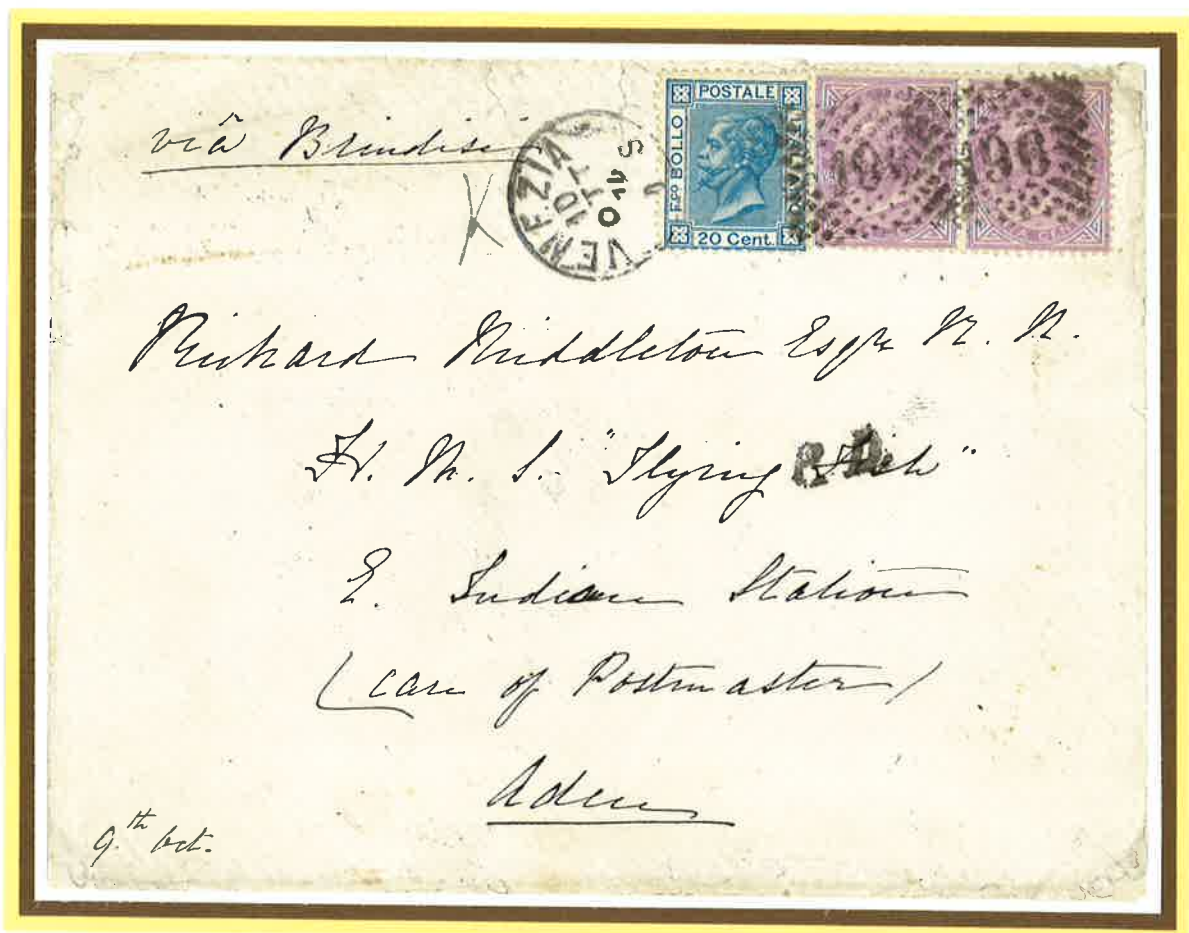 viâ Brindisi
VENEZIA
10
OTT
POSTALE
FCO BOLLO
20 Cent.
196
Richard Middleton Esqre R. N.
H. M. S. "Flying Fish"
P.D.
E. Indian Station
(care of Postmaster)
Aden
9.th Oct.